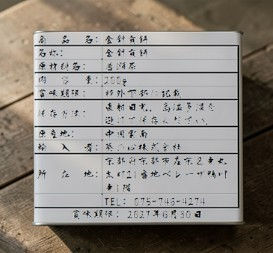 商品名: 金針貢餅
名称: 金針貢餅
原材料名: 普洱茶
内容量: 200g
賞味期限: 枠外下部に記載
保存方法: 直射日光、高温多湿を
避けて保存ください。
原産地: 中国雲南
輸入者: 株式会社
所在地: 京都府京都市左京区
1階
TEL: 075-746-4274
賞味期限: 2027年6月30日